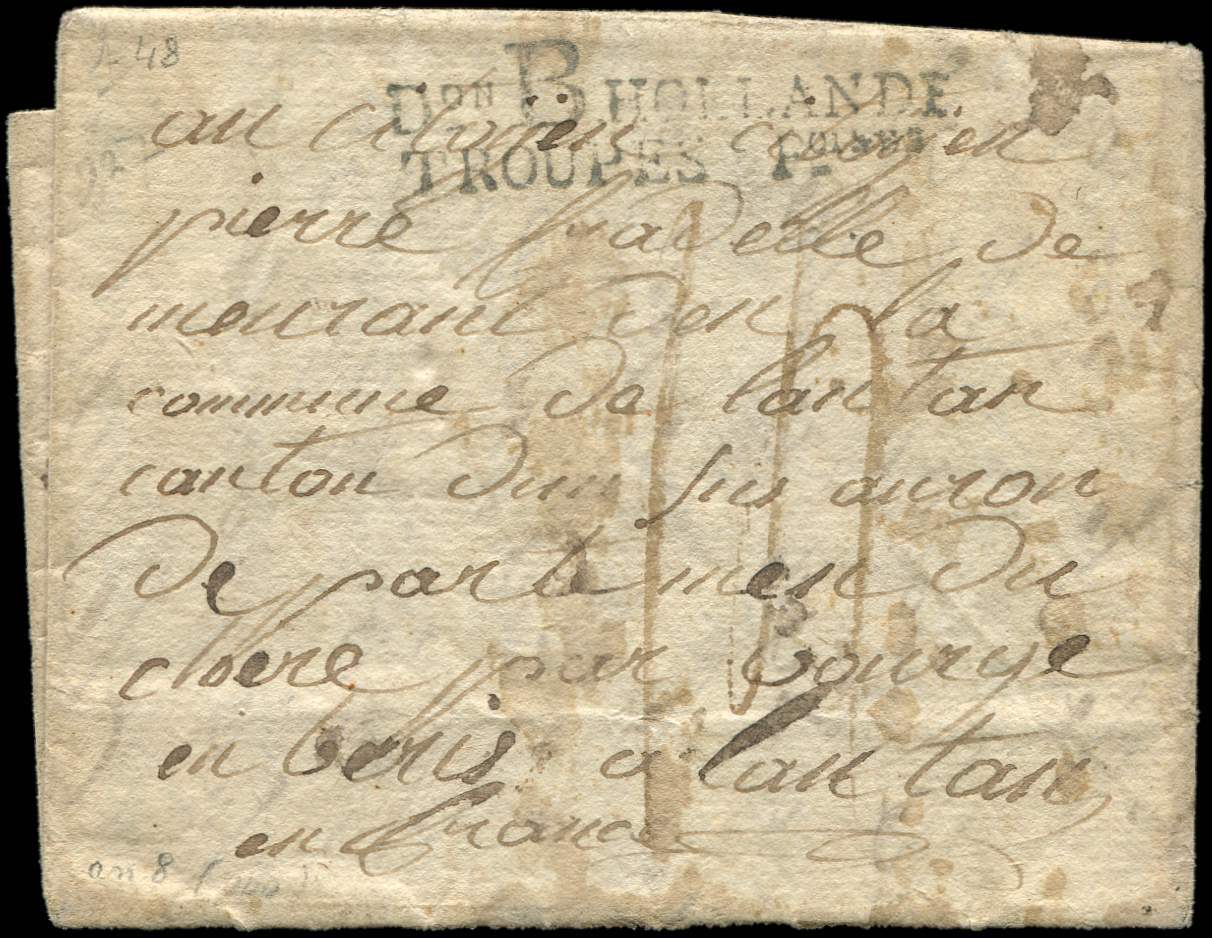 48
Dᴼᴺ B HOLLANDE.
TROUPES Fᶜᴬᴵˢᴱˢ
au citoien citoyen
pierre fradelle de
meurant den la
commune de lantan
canton dun sus auron
de partemen du
chere par bourge
en beris a lantan
en france
an 8